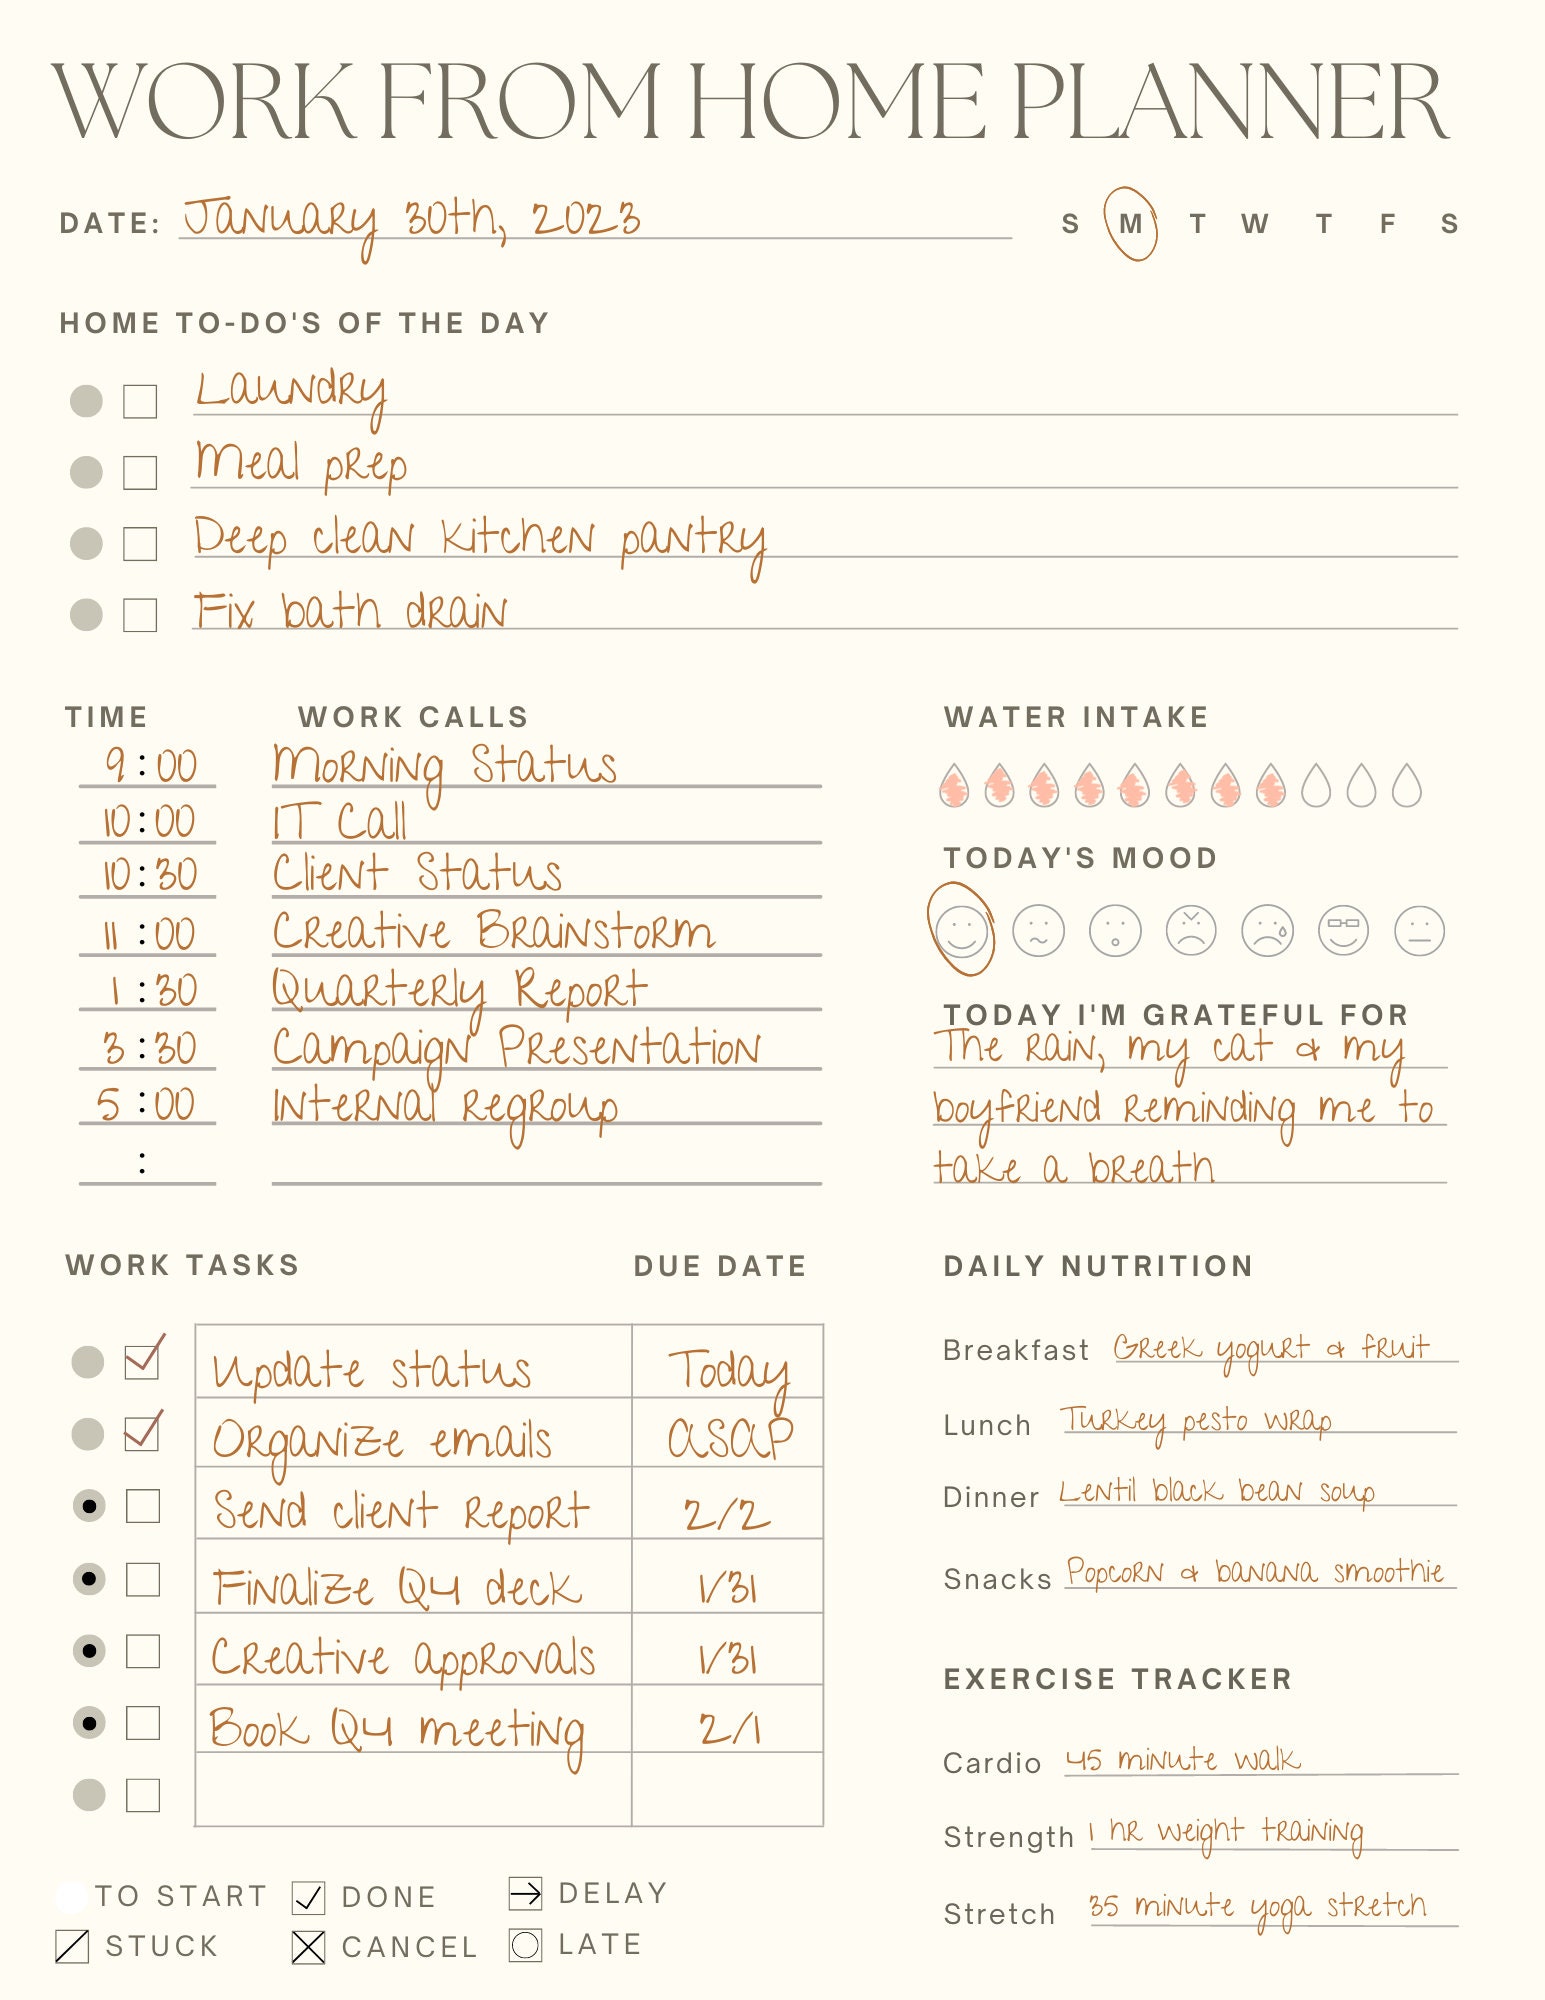 WORK FROM HOME PLANNER
DATE: January 30th, 2023 S M T W T F S
HOME TO-DO'S OF THE DAY
Laundry
Meal prep
Deep clean kitchen pantry
Fix bath drain
TIME WORK CALLS
9:00 Morning Status
10:00 IT Call
10:30 Client Status
11:00 Creative Brainstorm
1:30 Quarterly Report
3:30 Campaign Presentation
5:00 Internal regroup
:
WATER INTAKE
TODAY'S MOOD
TODAY I'M GRATEFUL FOR
The rain, my cat & my
boyfriend reminding me to
take a breath
WORK TASKS DUE DATE
Update status Today
Organize emails ASAP
Send client report 2/2
Finalize Q4 deck 1/31
Creative approvals 1/31
Book Q4 meeting 2/1
TO START DONE DELAY
STUCK CANCEL LATE
DAILY NUTRITION
Breakfast Greek yogurt & fruit
Lunch Turkey pesto wrap
Dinner Lentil black bean soup
Snacks Popcorn & banana smoothie
EXERCISE TRACKER
Cardio 45 minute walk
Strength 1 hr weight training
Stretch 35 minute yoga stretch